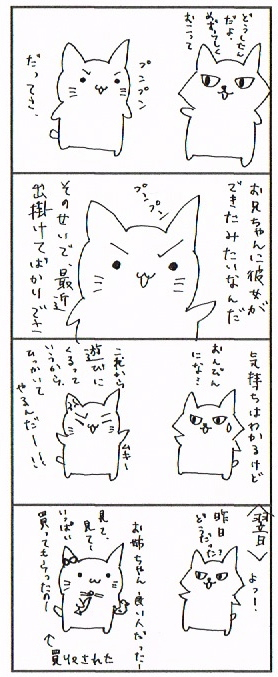 どうしたん
だよ
めずらしく
おこって
プンプン
だってさ、
お兄ちゃんに彼女が
できたみたいなんだ
プンプン
そのせいで最近
出掛けてばかりでさ
気持ちはわかるけど
おんびん
にな!
これから
遊びに
くるって
いうから、
ひっかいて
やるんだーー!!
ムキー
<翌日>
よっー!
昨日
どうだった?
お姉ちゃん良い人だったー
見て、
見て〜
いっぱい
買ってもらったの〜
←買収された